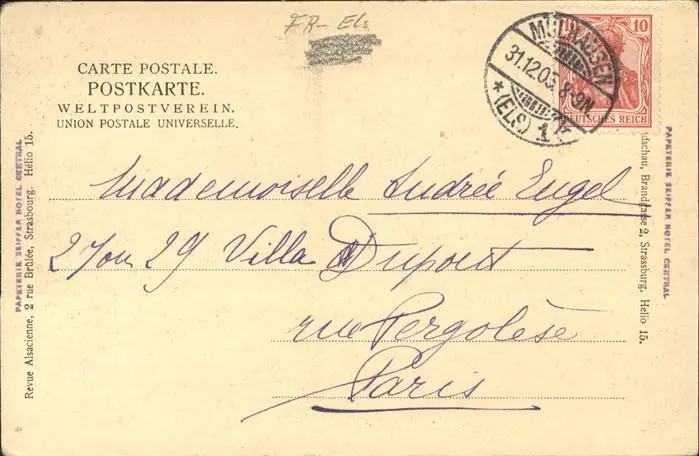 FR- Els.
CARTE POSTALE.
POSTKARTE.
WELTPOSTVEREIN.
UNION POSTALE UNIVERSELLE.
10 10
DEUTSCHES REICH
MÜLHAUSEN
31.12.05. 8-9N
* (ELS) 1
Mademoiselle Andrée Engel
27 ou 29 Villa Dupont
rue Pergolèse
Paris
PAPETERIE SEIFFER HOTEL CENTRAL
Revue Alsacienne, 2 rue Brûlée, Strasbourg. Hélio 15.
PAPETERIE SEIFFER HOTEL CENTRAL
dschau, Brandgasse 2, Strassburg. Helio 15.